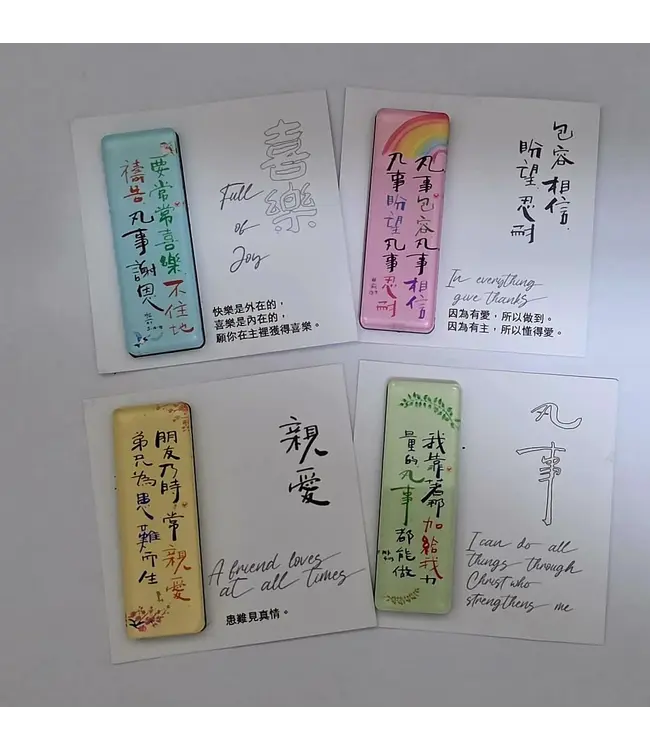 要常常喜樂不住地
禱告凡事謝恩
喜樂
Full
of
Joy
快樂是外在的，
喜樂是內在的，
願你在主裡獲得喜樂。
凡事包容凡事相信
凡事盼望凡事忍耐
包容相信
盼望忍耐
In everything
give thanks
因為有愛，所以做到。
因為有主，所以懂得愛。
朋友乃時常親愛
弟兄為患難而生
親愛
A friend loves
at all times
患難見真情。
我靠著那加給我力
量的凡事都能做
凡事
I can do all
things through
Christ who
strengthens me